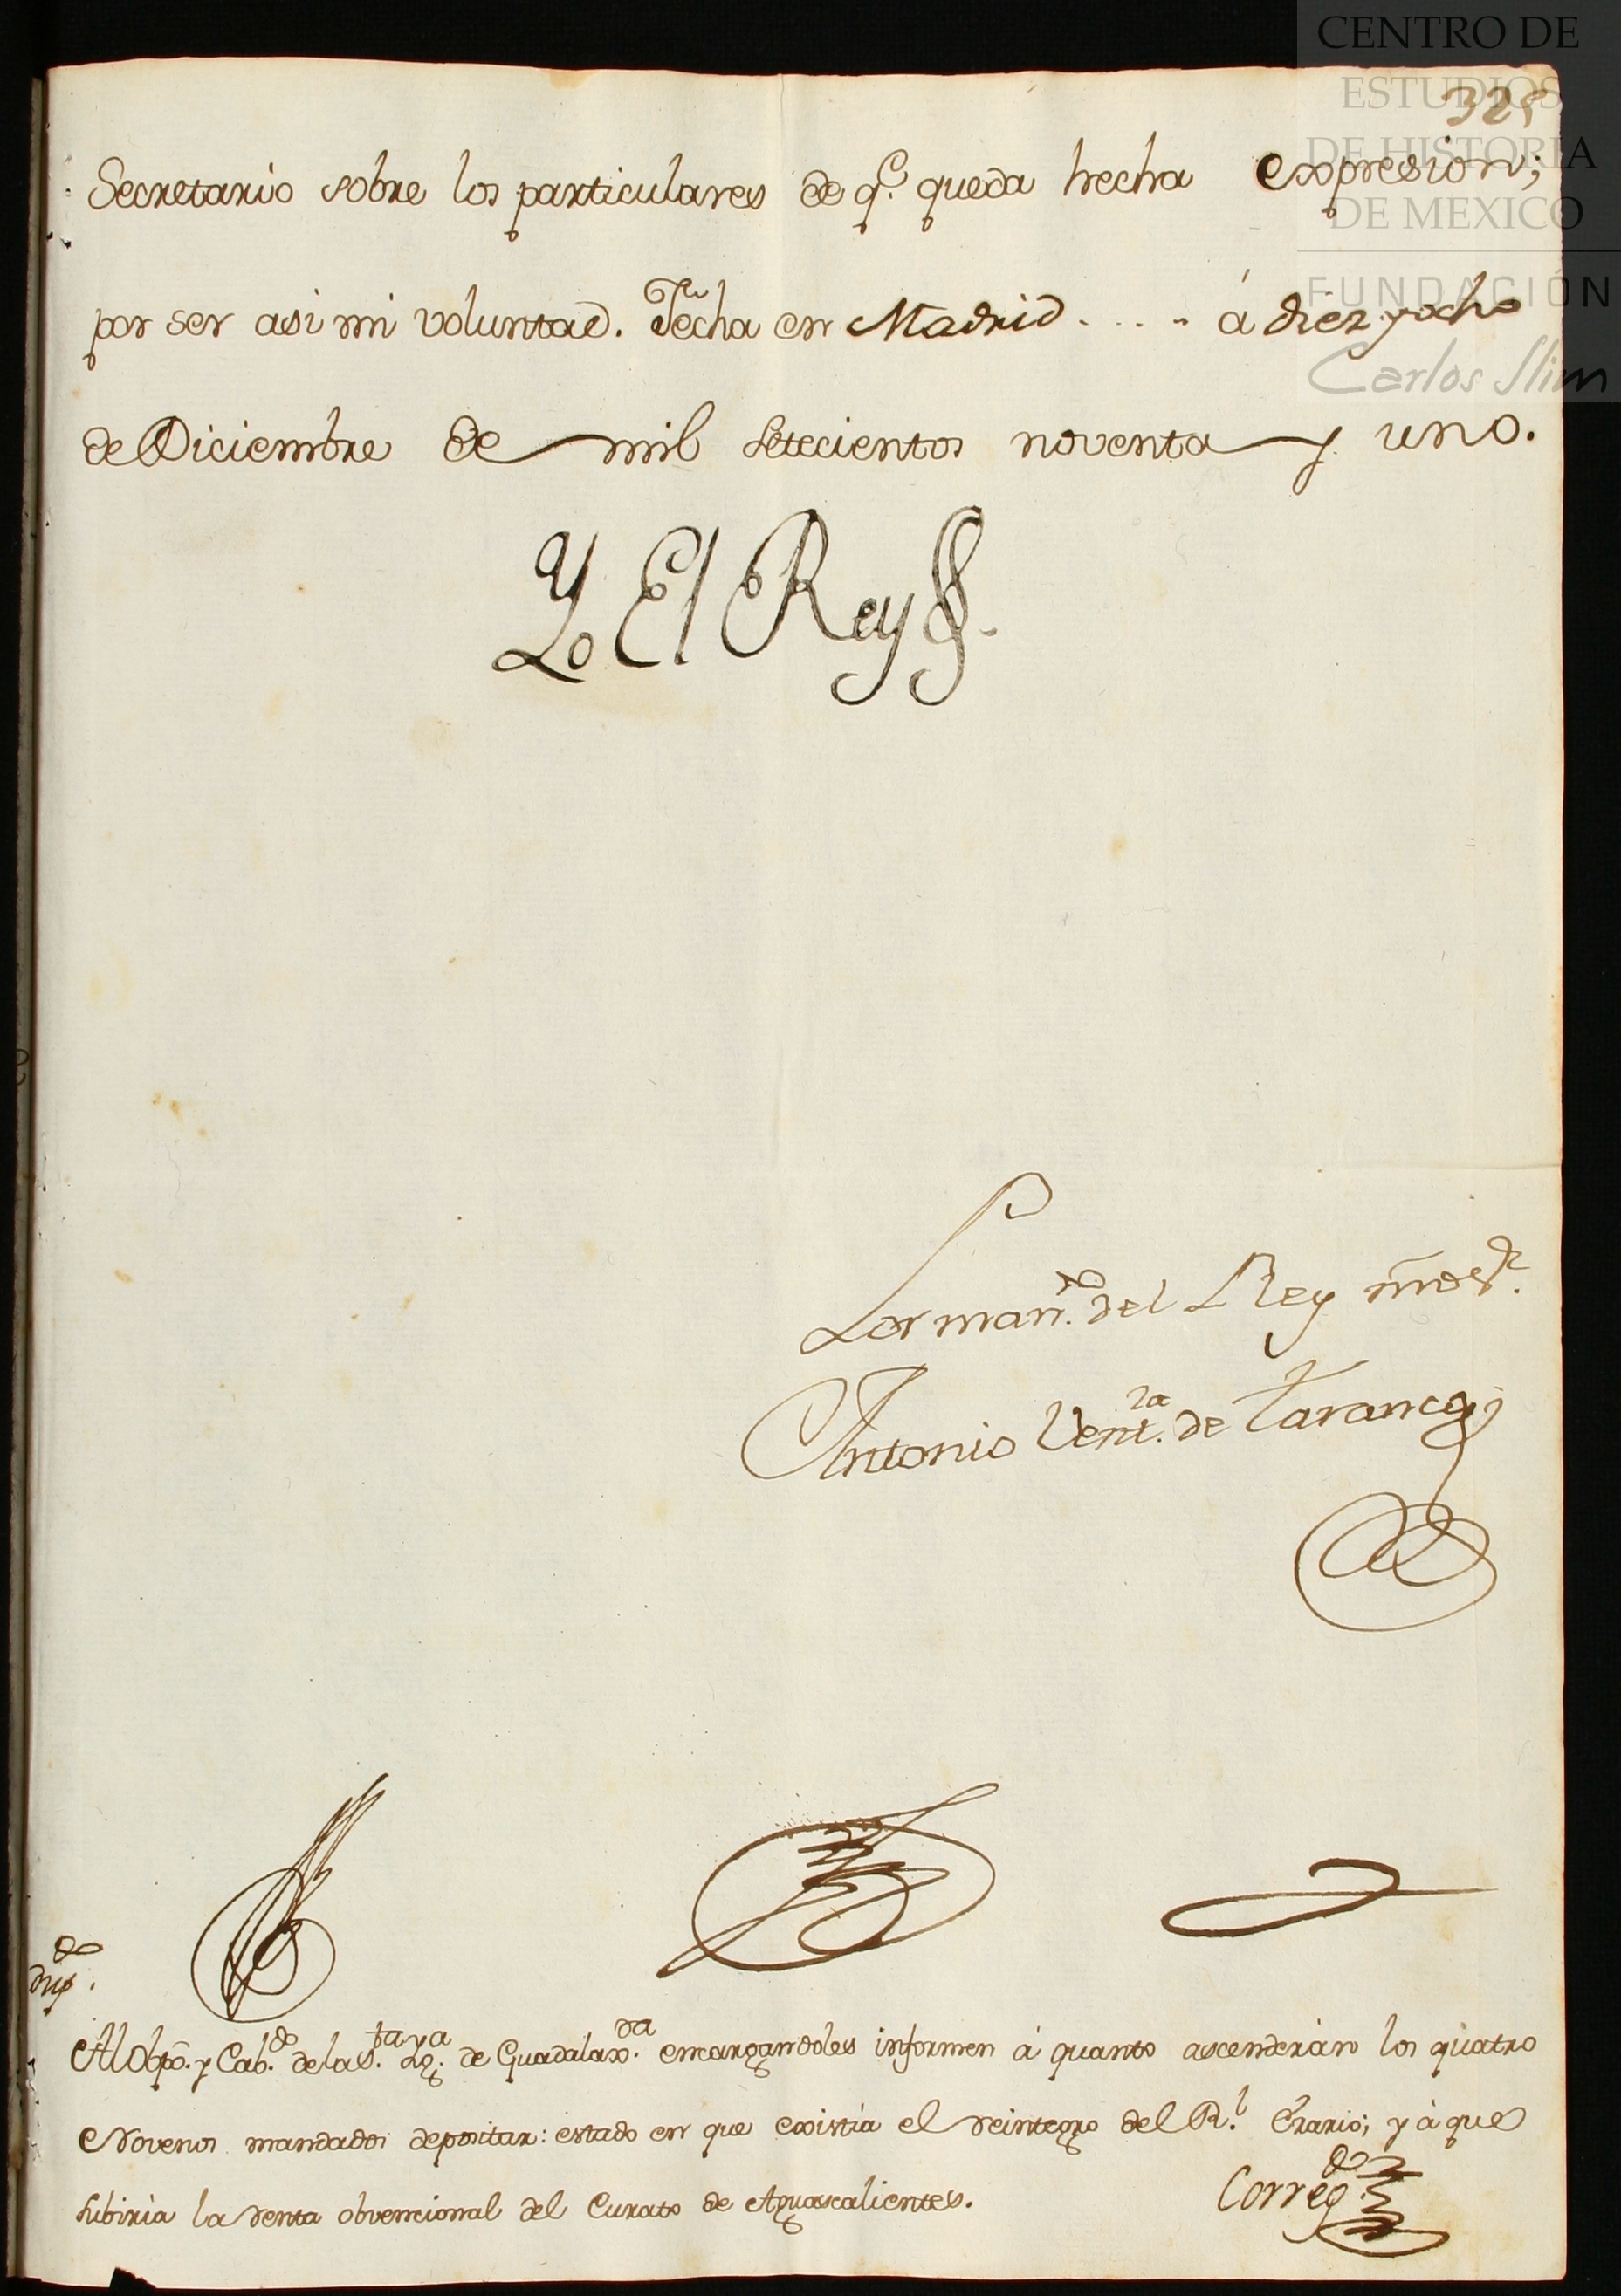 CENTRO DE
ESTUDIOS
DE HISTORIA
DE MEXICO
FUNDACIÓN
Carlos Slim
325
Secretario sobre los particulares de q.e queda hecha expresion;
por ser asi mi voluntad. Fecha en Madrid . . . . á diez y ocho
de Diciembre de mil setecientos noventa y uno.
Yo El Rey
Por man.do del Rey ñro S.r
Antonio Vent.ra de Taranco
dup.do
Al Obpō. y Cab.do de la S.ta Yg.a de Guadalax.ra encargandoles informen á quanto ascenderán los quatro
Novenos mandados depositar: estado en que existia el reintegro del R.l Erario; y á que
subiria la renta obvencional del Curato de Aguascalientes.
Correg.do